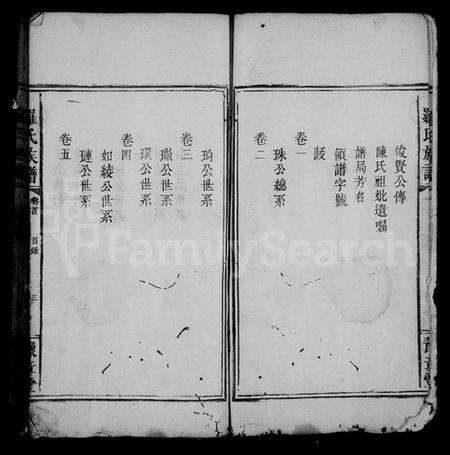 羅氏族譜
俊賢公傳
陳氏祖妣遺囑
譜局芳名
領譜字號
跋
卷一
珠公總系
卷二
珣公世系
卷三
璥公世系
環公世系
卷四
如綾公世系
璉公世系
卷五
羅氏族譜
卷首
目錄
三
豫章堂
FamilySearch